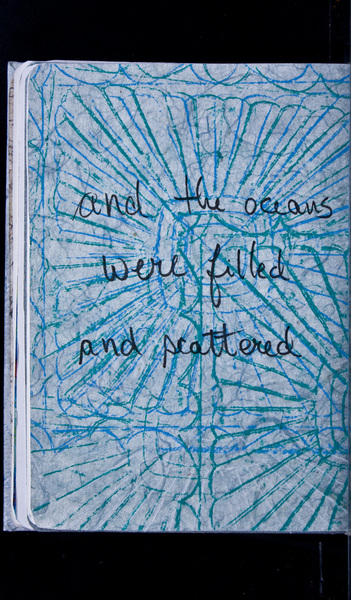 and the oceans
were filled
and scattered